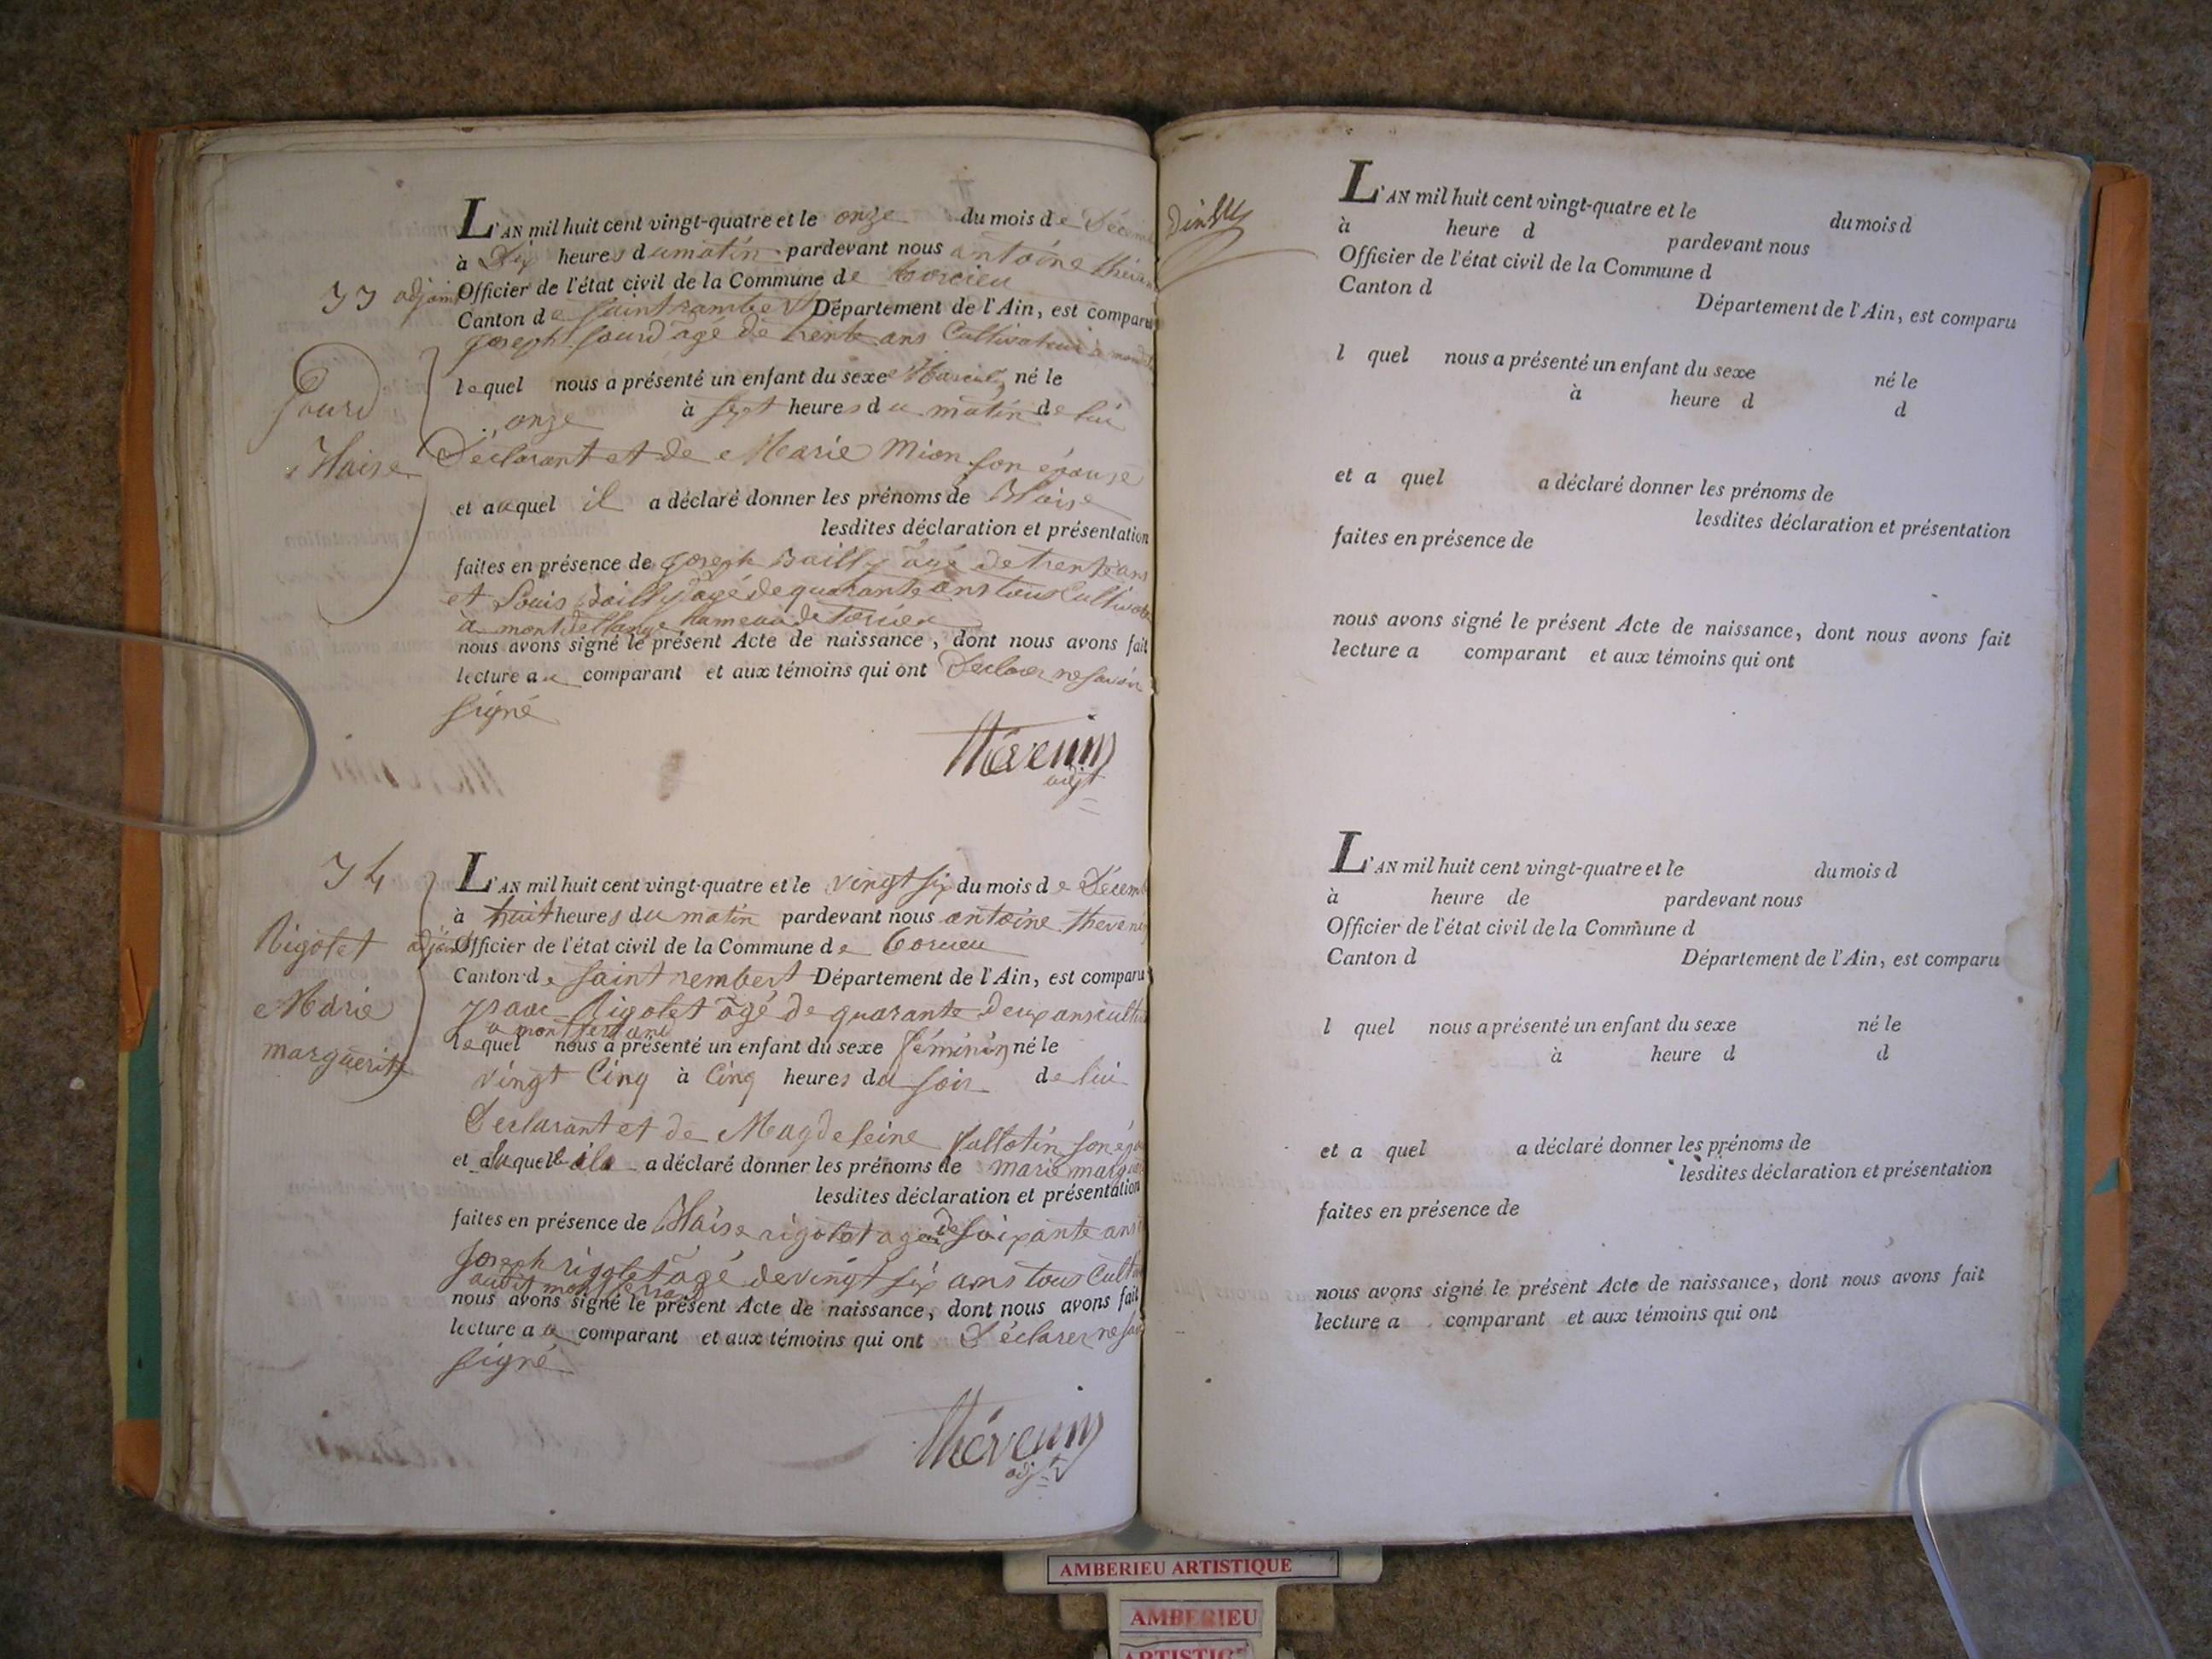 L'AN mil huit cent vingt-quatre et le onze du mois de Décem
à Dix heures du matin pardevant nous antoine théve
33 adjoint Officier de l'état civil de la Commune de torcieu
Canton de saint rambert Département de l'Ain, est comparu
joseph jourd âgé de trente ans Cultivateur à
lequel nous a présenté un enfant du sexe Masculin né le
onze à sept heures du matin de lui
Jourd
Blaise
Déclarant et de Marie Mion son épouse
et auquel il a déclaré donner les prénoms de Blaise
lesdites déclaration et présentation
faites en présence de joseph Bailly âgé de trente ans
et Louis Bailly âgé de quarante ans tous Cultivat
à hameau de Torcieu
nous avons signé le présent Acte de naissance, dont nous avons fait
lecture au comparant et aux témoins qui ont Déclarer ne savoir
signé
Thévenin
adjt
34
L'AN mil huit cent vingt-quatre et le vingt six du mois de Décem
à huit heures du matin pardevant nous antoine theveni
adjoint Officier de l'état civil de la Commune de torcieu
Rigolet
Marie
marguerite
Canton de saint rembert Département de l'Ain, est comparu
ysaac Rigolet âgé de quarante Deux ans cultiv
a montferrand
lequel nous a présenté un enfant du sexe féminin né le
vingt Cinq à Cinq heures du soir de lui
Déclarant et de Magdeleine fullotin son épou
et a laquelle il a déclaré donner les prénoms de marie marg
lesdites déclaration et présentation
faites en présence de Blaise rigolet age de soixante ans
joseph rigolet âgé de vingt six ans tous Cultiv
audit montferrand
nous avons signé le présent Acte de naissance, dont nous avons fait
lecture au comparant et aux témoins qui ont Déclarer ne sav
signé
Thévenin
adjt
L'AN mil huit cent vingt-quatre et le du mois d
à heure d pardevant nous
Officier de l'état civil de la Commune d
Canton d Département de l'Ain, est comparu
l quel nous a présenté un enfant du sexe né le
à heure d d
et a quel a déclaré donner les prénoms de
lesdites déclaration et présentation
faites en présence de
nous avons signé le présent Acte de naissance, dont nous avons fait
lecture a comparant et aux témoins qui ont
L'AN mil huit cent vingt-quatre et le du mois d
à heure de pardevant nous
Officier de l'état civil de la Commune d
Canton d Département de l'Ain, est comparu
l quel nous a présenté un enfant du sexe né le
à heure d d
et a quel a déclaré donner les prénoms de
lesdites déclaration et présentation
faites en présence de
nous avons signé le présent Acte de naissance, dont nous avons fait
lecture a comparant et aux témoins qui ont
AMBERIEU ARTISTIQUE
AMBERIEU
ARTISTIC